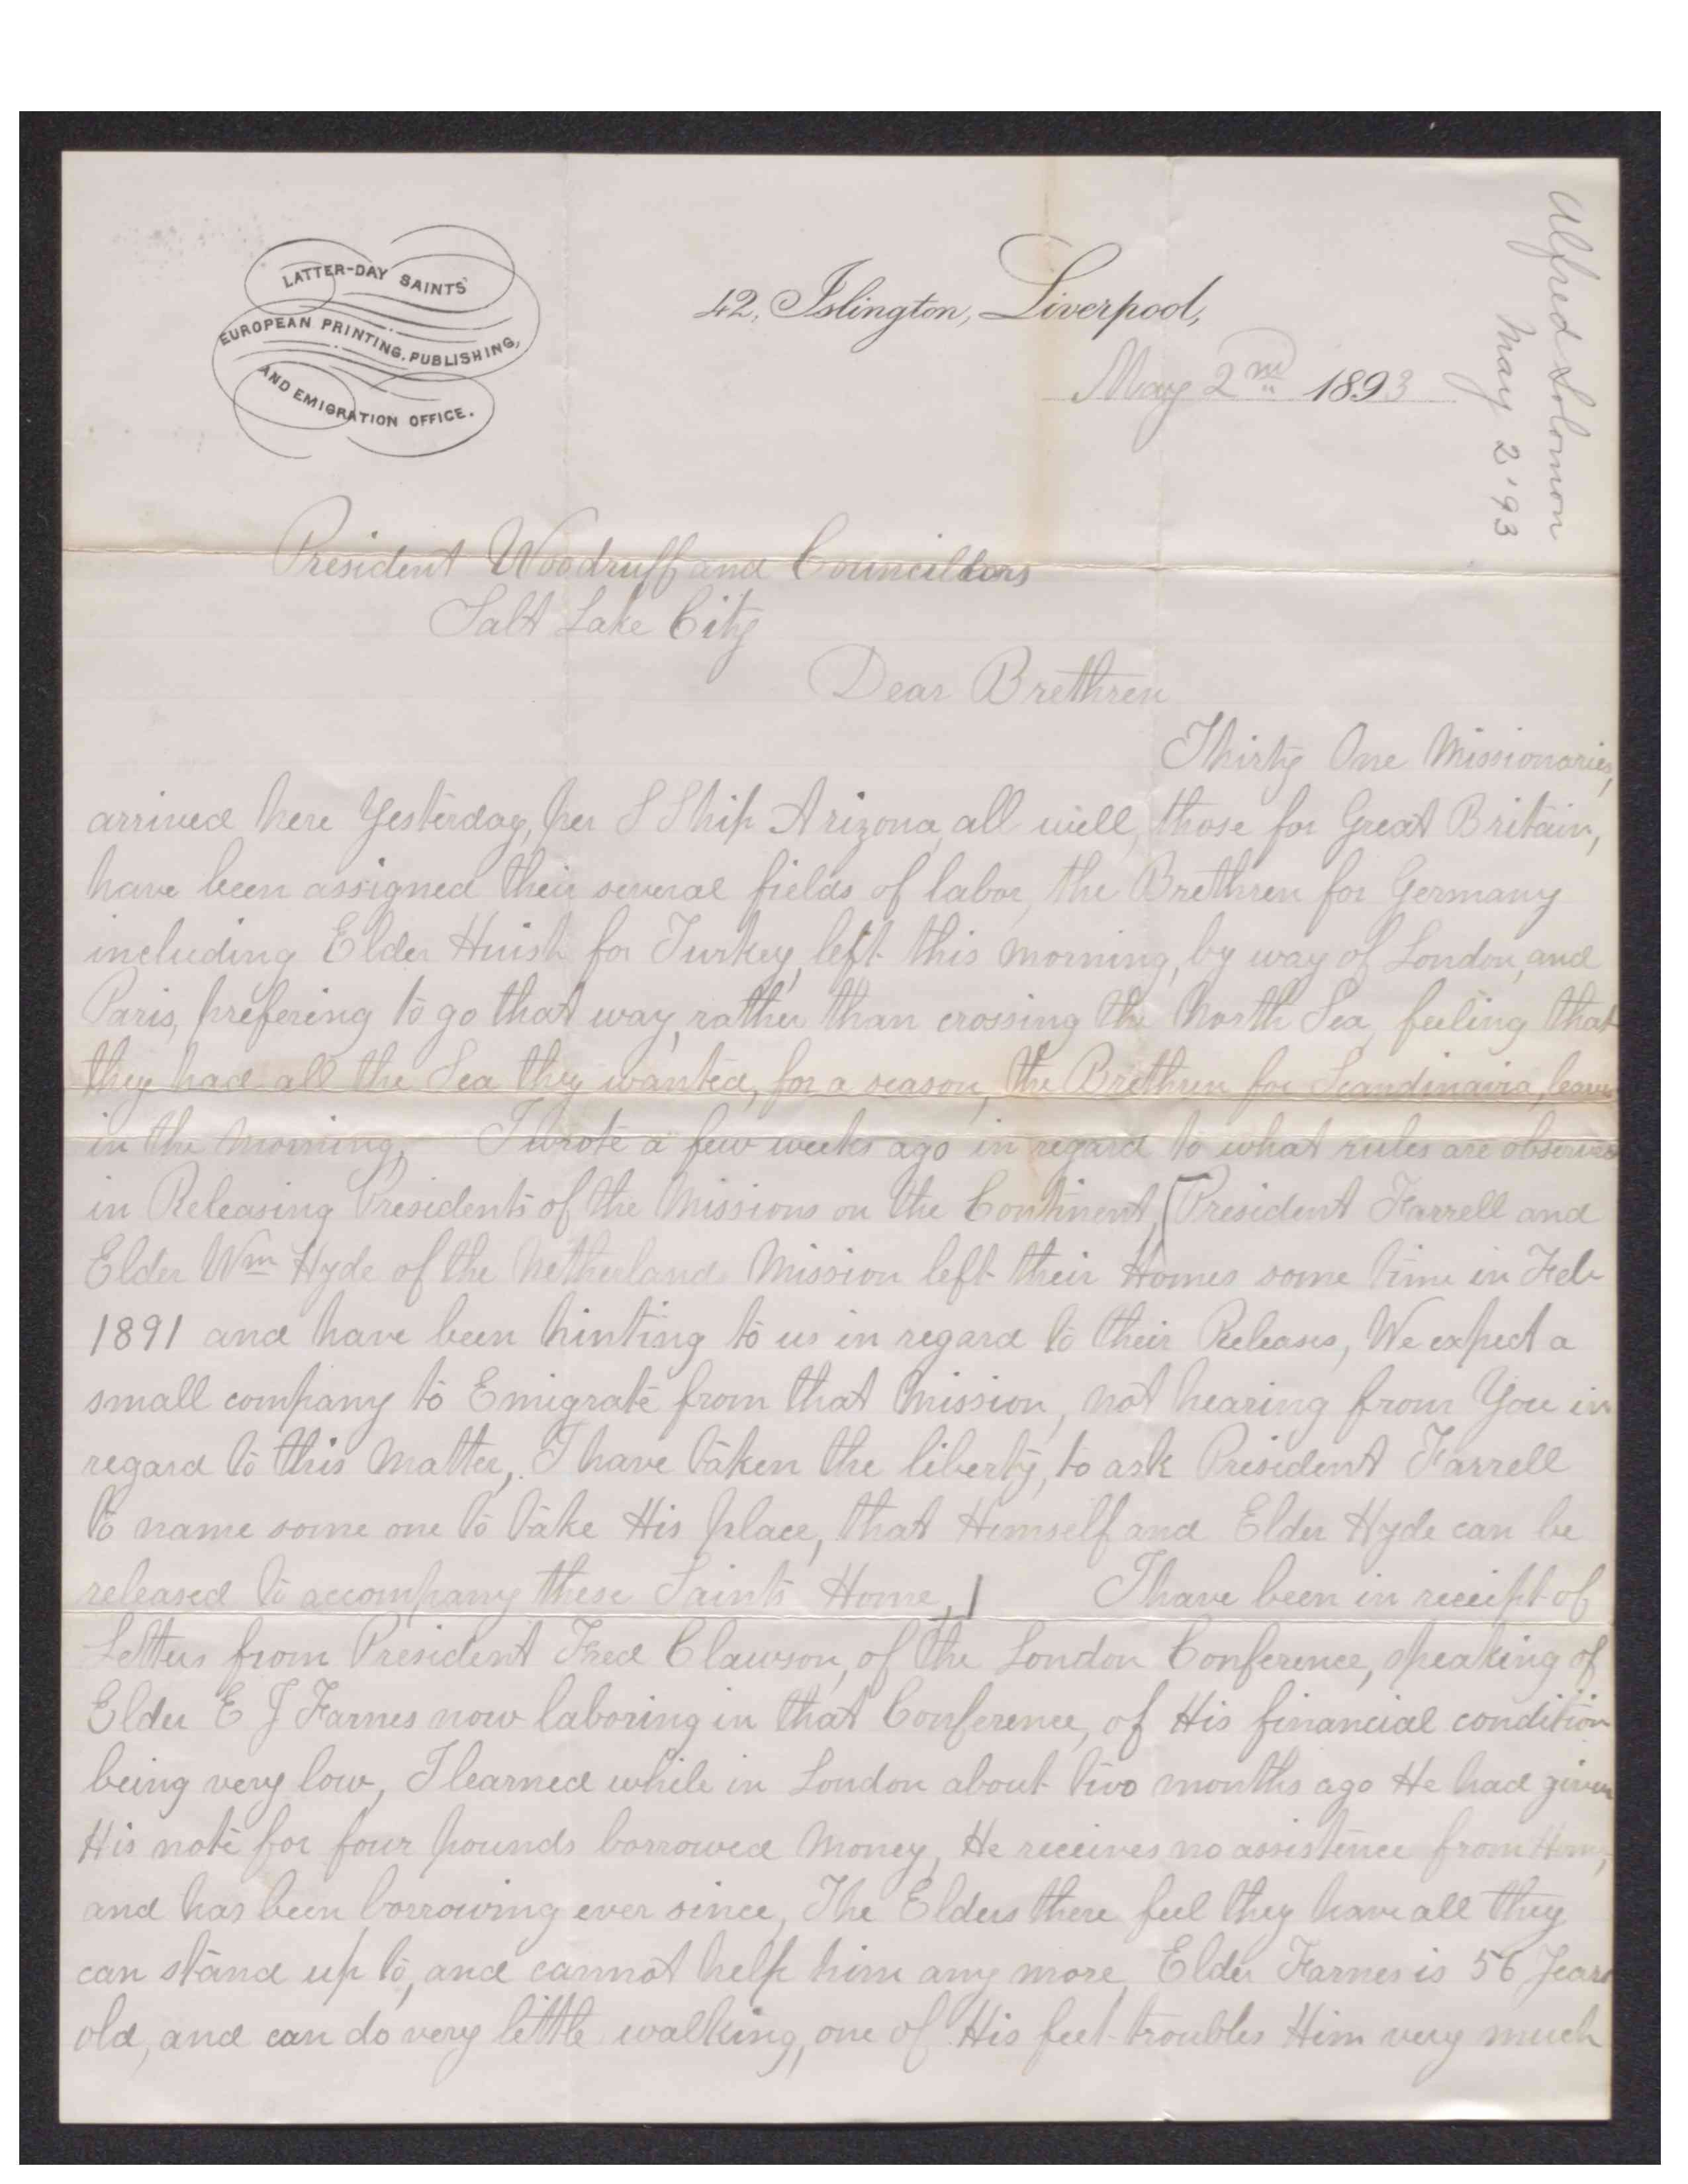 LATTER-DAY SAINTS'
EUROPEAN PRINTING, PUBLISHING,
AND EMIGRATION OFFICE.
42, Islington, Liverpool,
May 2nd 1893
Alfred Solomon
May 2 '93
President Woodruff and Councillors
Salt Lake City
Dear Brethren
Thirty One Missionaries,
arrived here Yesterday, per S Ship Arizona, all well, those for Great Britain,
have been assigned their several fields of labor, the Brethren for Germany
including Elder Huish for Turkey, left this morning, by way of London, and
Paris, prefering to go that way, rather than crossing the North Sea, feeling that
they had all the Sea they wanted, for a season, the Brethren for Scandinavia, leave
in the morning, I wrote a few weeks ago in regard to what rules are observed
in Releasing Presidents of the Missions on the Continent, [President Farrell and
Elder Wm Hyde of the Netherlands Mission left their Homes some time in Feb
1891 and have been hinting to us in regard to their Releases, We expect a
small company to Emigrate from that Mission, not hearing from You in
regard to this Matter, I have taken the liberty, to ask President Farrell
to name some one to take His place, that Himself and Elder Hyde can be
released to accompany these Saints Home,] I have been in receipt of
Letters from President Fred Clawson, of the London Conference, speaking of
Elder E J Farnes now laboring in that Conference, of His financial condition
being very low, I learned while in London about two months ago He had given
His note for four pounds borrowed Money, He receives no assistence from Home,
and has been borrowing ever since, The Elders there feel they have all they
can stand up to, and cannot help him any more, Elder Farnes is 56 Years
old, and can do very little walking, one of His feet troubles Him very much